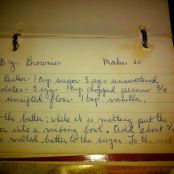 Brownies Makes 20
Butter 1 cup sugar 3 eggs unsweetened
1 cup chopped pecans 3/4
unsifted flour 1 tsp vanilla.
the butter; while it is melting put the
into a mixing bowl. Add about
melted butter to the sugar. To the